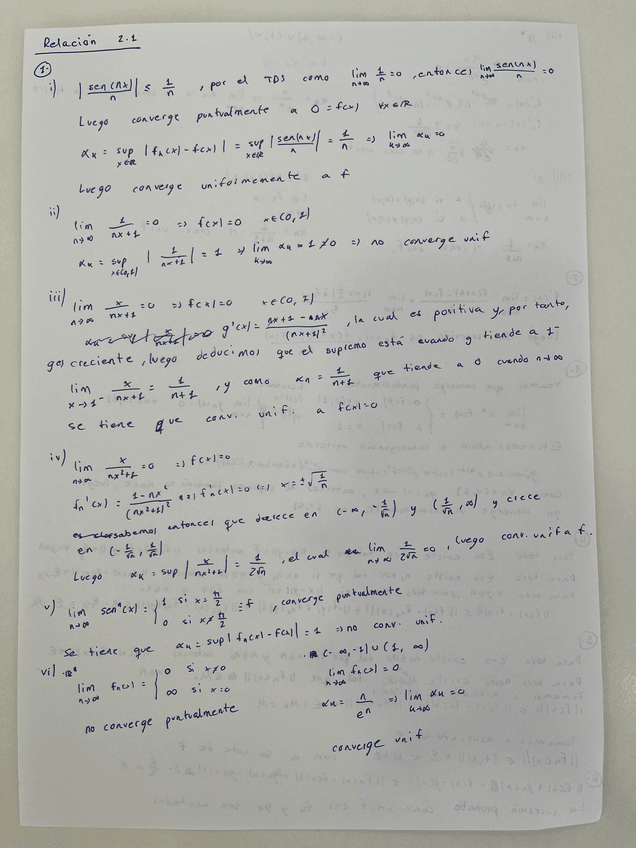 Relación 2.1
1-
i) |sen(nx)/n| ≤ 1/n, por el TDS como lim n→∞ 1/n = 0, entonces lim n→∞ sen(nx)/n = 0
Luego converge puntualmente a 0 = f(x) ∀x∈ℝ
αn = sup x∈ℝ |fn(x) - f(x)| = sup x∈ℝ |sen(nx)/n| = 1/n ⇒ lim n→∞ αn = 0
Luego converge uniformemente a f
ii) lim n→∞ 1/(nx+1) = 0 ⇒ f(x) = 0 x∈(0,1)
αn = sup x∈(0,1) |1/(nx+1)| = 1 ⇒ lim n→∞ αn = 1 ≠ 0 ⇒ no converge unif
iii) lim n→∞ x/(nx+1) = 0 ⇒ f(x) = 0 x∈(0,1)
g'(x) = (nx+1-nx)/(nx+1)², la cual es positiva y, por tanto,
g es creciente, luego deducimos que el supremo está cuando g tiende a 1⁻
lim x→1⁻ x/(nx+1) = 1/(n+1), y como αn = 1/(n+1) que tiende a 0 cuando n→∞
se tiene que conv. unif. a f(x)=0
iv) lim n→∞ x/(nx²+1) = 0 ⇒ f(x) = 0
fn'(x) = (1-nx²)/(nx²+1)² ⇒ fn'(x) = 0 ⇔ x = ±√(1/n)
sabemos entonces que decrece en (-∞, -1/√n) y (1/√n, ∞) y crece
en (-1/√n, 1/√n)
Luego αn = sup |x/(nx²+1)| = 1/(2√n), el cual lim n→∞ 1/(2√n) = 0, luego conv. unif a f.
v) lim n→∞ senⁿ(x) = { 1 si x = π/2; 0 si x ≠ π/2 } = f, converge puntualmente
Se tiene que αn = sup |fn(x) - f(x)| = 1 ⇒ no conv. unif.
vi) · ℝ
lim n→∞ fn(x) = { 0 si x≠0; ∞ si x=0 }
no converge puntualmente
· (-∞, -1) ∪ (1, ∞)
lim n→∞ fn(x) = 0
αn = n/eⁿ ⇒ lim n→∞ αn = 0
converge unif